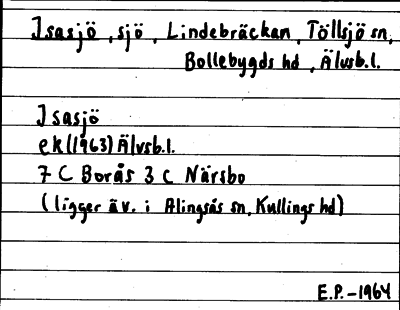 Isasjö, sjö, Lindebräckan, Töllsjö sn,
Bollebygds hd, Älvsb.l.
Isasjö
ek(1963) Älvsb.l.
7 C Borås 3 c Närsbo
(ligger äv. i Alingsås sn, Kullings hd)
E.P.-1964